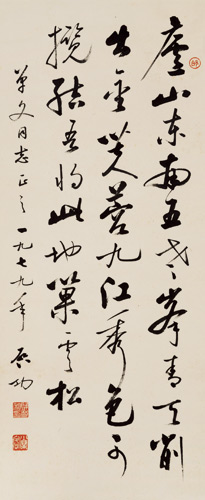 廬山东南五老峯青天削
出金芙蓉九江秀色可
攬結吾将此地巢雲松
文同志正之一九七九年 启功